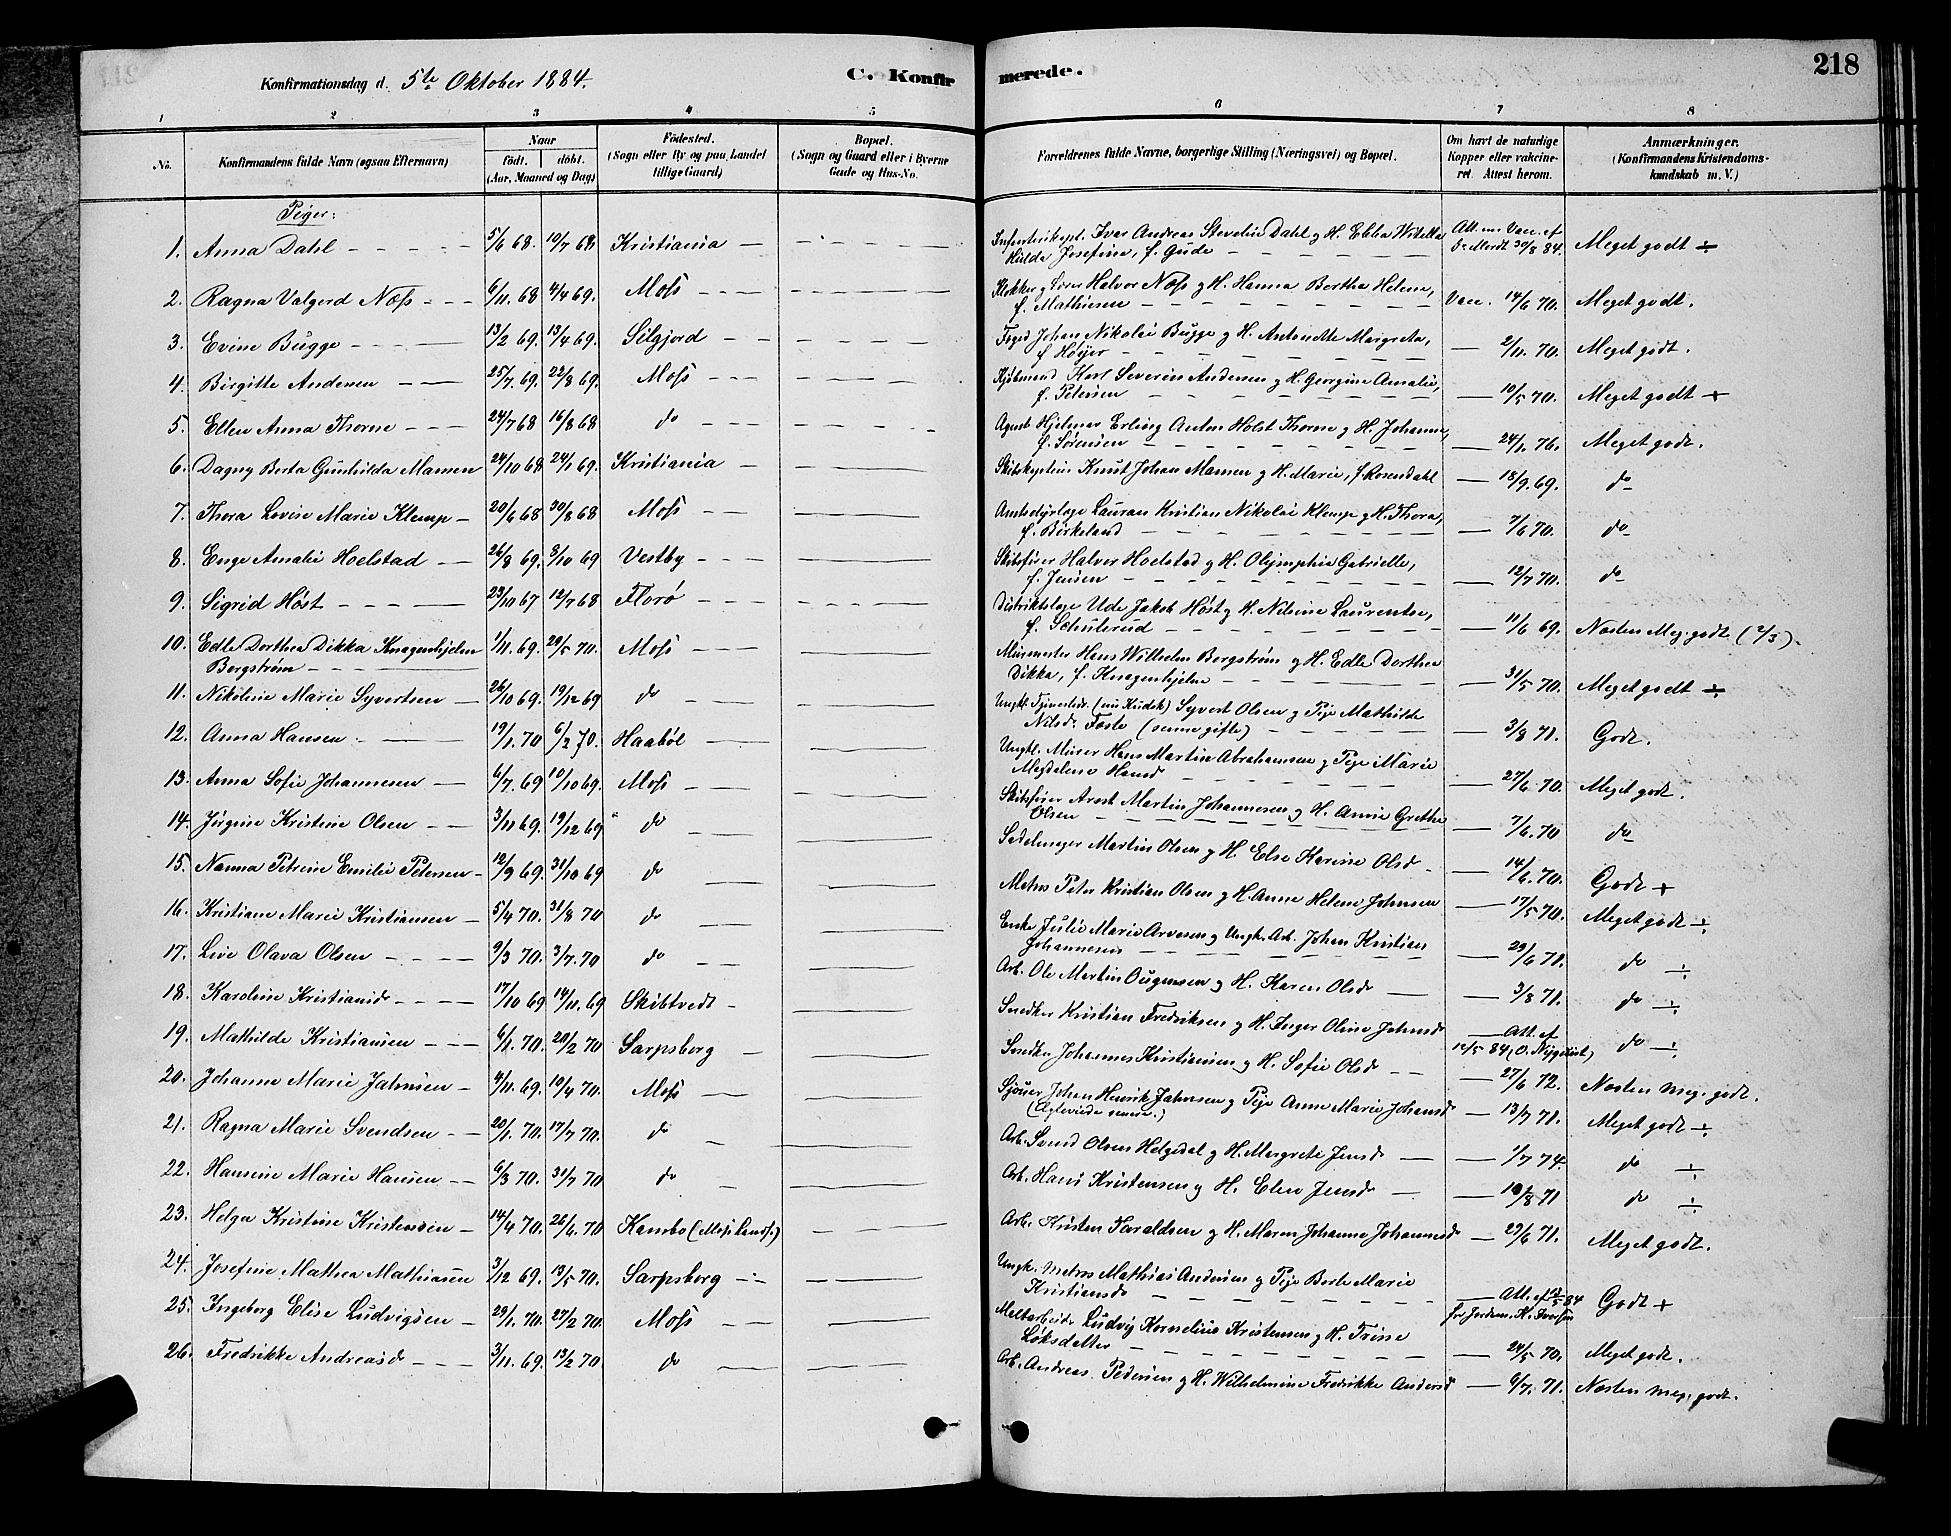 218
Konfirmationsdag d. 5te Oktober 1884.
C. Konfirmerede.
1 2 3 4 5 6 7 8
No. Konfirmandens fulde Navn (ogsaa Efternavn) Naar födt. döbt. (Aar, Maaned og Dag) Födested. (Sogn eller By og paa Landet tillige Gaard) Bopæl. (Sogn og Gaard eller i Byerne Gade og Hus-No. Forældrenes fulde Navne, borgerlige Stilling (Næringsvei) og Bopæl. Om havt de naturlige Kopper eller vakcineret. Attest herom. Anmærkninger. (Konfirmandens Kristendomskundskab m. V.)
Piger:
1. Anna Dahl 5/6 68. 10/7 68 Kristiania Ivar Andreas Stevelin Dahl g H. Ebba Hilda Josefine, f. Gude Att. om Vacc. af 30/8 84. Meget godt ÷
2. Ragna Valgerd Næss 6/11 68 4/4 69. Moss Klokker g Lærer Halvor Næss g H. Hanna Bertha Helene, f. Mathiesen Vacc. 14/6 70. Meget godt.
3. Evine Bugge 13/2 69. 13/4 69. Silgjord Foged Johan Nikolai Bugge g H. Antonette Margreta, f Höyer — 2/11. 70. Meget godt.
4. Birgitte Andersen 25/7 69. 22/8 69. Moss Kjöbmand Karl Severin Andersen g H. Georgine Amalie, f. Petersen — 10/5 70. Meget godt +
5. Ellen Anna Thorne 24/7 68 16/8 68 do Agent Hjelmar Erling Anton Holst Thorne g H. Johanne, f. Sörensen — 24/1. 76. Meget godt.
6. Dagny Berta Gunhilda Mamen 24/10 68 24/1 69. Kristiania Skibskaptein Knut Johan Mamen g H. Marie, f. Rosendahl — 18/9. 69. do
7. Thora Lovise Marie Klemp 20/6 68 30/8 68 Moss Amtsdyrlæge Lauran Kristian Nikolai Klemp g H. Thora, f. Birkeland — 7/6 70. do
8. Enge Amalie Hoelstad 26/8 69. 3/10 69 Vestby Skibsförer Halvor Hoelstad g H. Olijmphia Gabrielle, f. Jensen — 12/7 70. do
9. Sigrid Höst 23/10 67 12/7 68 Florö Distriktslæge Ude Jakob Höst g H. Nilsine Laurentse, f. Schulerud — 11/6 69. Næsten Meg. godt (2/3).
10. Edle Dorthea Dikka Knagenhjelm Bergström 1/11. 69. 29/5 70. Moss Murmester Hans Wilhelm Bergström g H. Edle Dorthea Dikka, f. Knagenhjelm — 31/5 70. Meget godt ÷
11. Nikoline Marie Syvertsen 26/10 69. 19/12 69 do Ungkl. Tjenestedr. (nu Kudsk) Syvert Olsen g Pige Mathilde Nilsdr Foste (senere gifte) — 3/8 71. Godt.
12. Anna Hansen 19/1. 70 6/2 70. Haaböl Ungkl. Murer Hans Martin Abrahamsen g Pige Marie Magdalene Hansd — 27/6 70. Meget godt.
13. Anna Sofie Johannesen 6/7. 69 10/10 69. Moss Skibsförer Arnt Martin Johannesen g H. Annie Grethe Olsen — 7/6. 70 do
14. Jörgine Kristine Olsen 3/11 69. 19/12 69 do Sadelmager Martin Olsen g H. Else Karine Olsd — 14/6. 70. Godt +
15. Nanna Petrine Emilie Petersen 12/9 69. 31/10 69 do Matros Peter Kristian Olsen g H. Anne Helene Johnsen — 17/5 70. Meget godt ÷
16. Kristiane Marie Kristiansen 5/4 70. 31/8 70 do Enke Julie Marie Arvesen g Ungk. Arb. Johan Kristian Johannesen — 29/6 71. do ÷
17. Live Olava Olsen 9/3 70. 3/7. 70 do Arb. Ole Martin g H. Karen Olsd — 3/8 71. do ÷
18. Karoline Kristiansd 17/10 69 14/11. 69 Skibtvedt Snedker Kristian Fredriksen g H. Inger Oline Johnsd — Att. af 12/5 84 (O. Nygdist) do ÷
19. Mathilde Kristiansen 6/1. 70. 20/2 70 Sarpsborg Snedker Johannes Kristiansen g H. Sofie Olsd — 27/6 72. Næsten meg. godt.
20. Johanne Marie Jahnsen 4/11. 69. 10/4 70. Moss Sjöuer Johan Henrik Jahnsen g Pige Anne Marie Johansd (Ægteviede senere.) — 13/7 71. Meget godt ÷
21. Ragna Marie Svendsen 20/1. 70. 17/7 70. do Arb. Svend Olsen Helgedal g H. Margrete Jensd — 1/7 74. do ÷
22. Hansine Marie Hansen 6/3 70. 31/7 70 do Arb. Hans Kristensen g H. Elen Jensd — 10/8 71 do ÷
23. Helga Kristine Kristensen 14/4 70. 26/6. 70 Kambo (Moss Lands.) Arb. Kristen Taraldsen g H. Maren Johanne Johannesd — 29/6 71. Meget godt.
24. Josefine Mathea Mathiasen 3/12 69. 13/5 70. Sarpsborg Ungk. Matros Mathias Andersen g Pige Berte Marie Kristiansd — Att. af 5 84 fr Jordem. H. Iversen Godt +
25. Ingeborg Elise Ludvigsen 29/1. 70. 27/2 70. Moss Maltarbeid. Ludvig Kornelius Kristensen g H. Trine Löksdatter — 24/5 70. Meget godt.
26. Fredrikke Andreasd 3/11. 69. 13/2 70. do Arb. Andreas Pedersen g H. Wilhelmine Fredrikke Andersd — 6/7. 71. Næsten meg. godt.